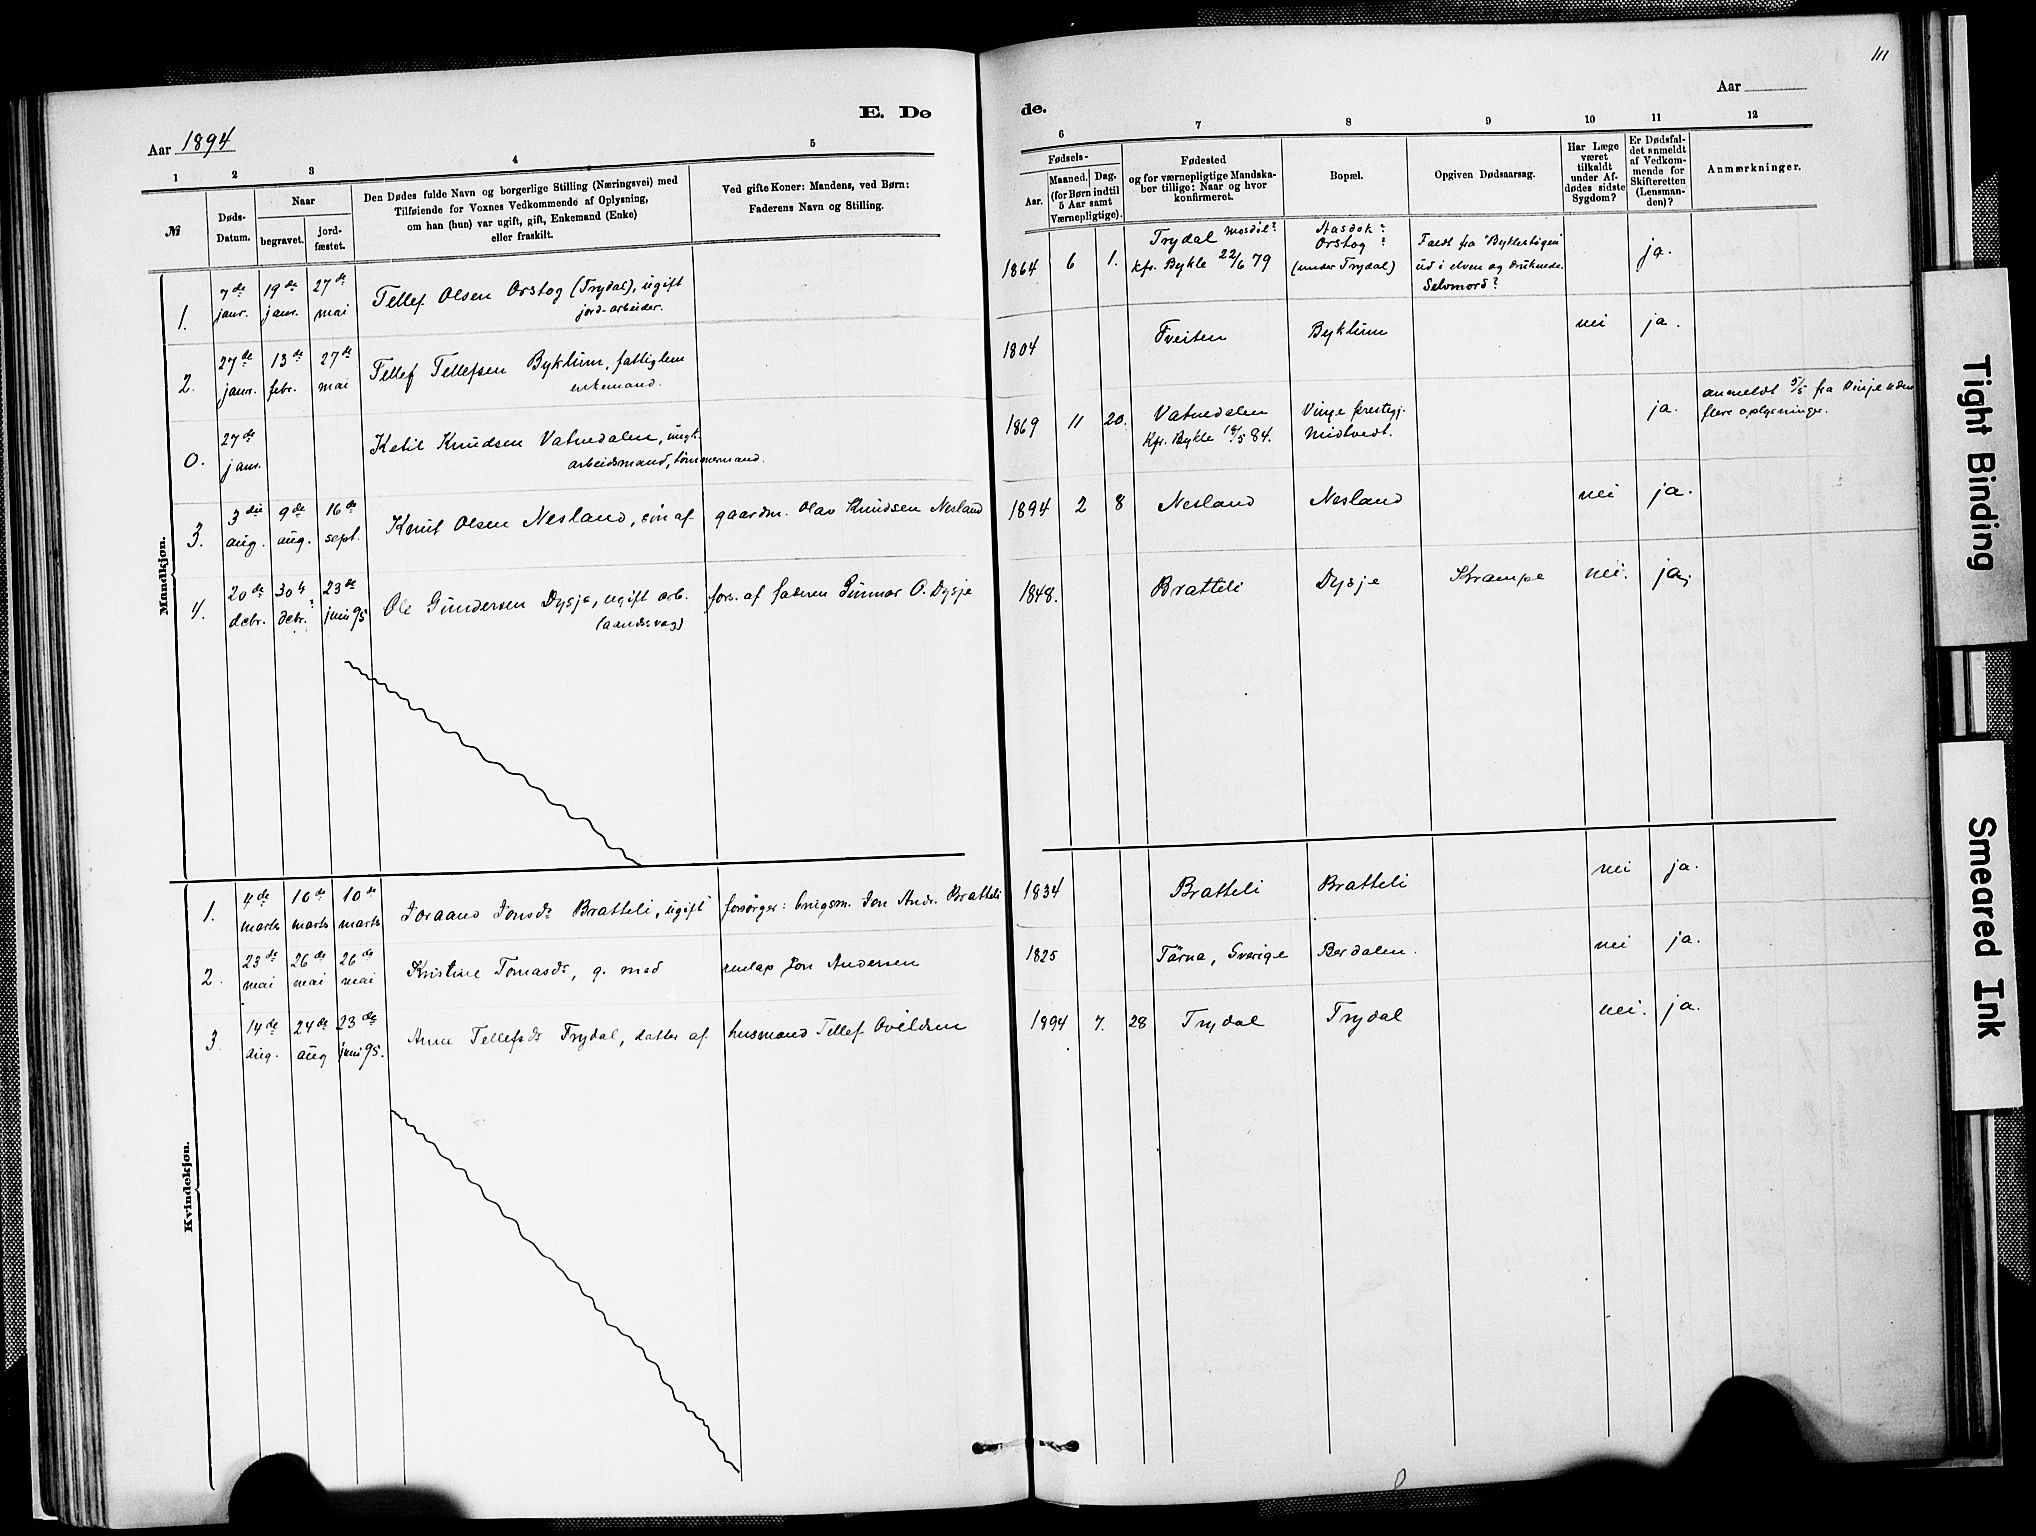 111
E. Dø
de.
Aar 1894
Aar
1
2
3
4
5
6
7
8
9
10
11
12
№
Døds-
Datum.
Naar
begravet.
jord-
fæstet.
Den Dødes fulde Navn og borgerlige Stilling (Næringsvei) med
Tilføiende for Voxnes Vedkommende af Oplysning,
om han (hun) var ugift, gift, Enkemand (Enke)
eller fraskilt.
Ved gifte Koner: Mandens, ved Børn:
Faderens Navn og Stilling.
Fødsels-
Aar.
Maaned. Dag.
(for Børn indtil
5 Aar samt
Værnepligtige).
Fødested
og for værnepligtige Mandska-
ber tillige: Naar og hvor
konfirmeret.
Bopæl.
Opgiven Dødsaarsag.
Har Læge
været
tilkaldt
under Af-
dødes sidste
Sygdom?
Er Dødsfal-
det anmeldt
af Vedkom-
mende for
Skifteretten
(Lensman-
den)?
Anmærkninger.
Mandkjøn.
1.
7de
janr.
19de
janr.
27de
mai
Tellef Olsen Orstog (Trydal), ugift
jord-arbeider.
1864 6 1.
Trydal Mosdøl?
kfr. Bykle 22/6 79
Aasdok?
Orstog?
(under Trydal)
Faldt fra "Byklestigen"
ud i elven og druknede.
Selvmord?
ja.
2.
27de
janr.
13de
febr.
27de
mai
Tellef Tellefsen Byklum, fattiglem
enkemand.
1804
Tveiten
Byklum
nei
ja.
0.
27de
janr.
Ketil Knudsen Vatnedalen, ungk.
arbeidsmand, tømmermand.
1869 11 20.
Vatnedalen
Kfr. Bykle 18/5 84.
Vinje prestegj.
Midtvedt.
ja.
anmeldt 5/5 fra Vinje uden
flere oplysninger.
3.
3die
aug.
9de
aug.
16de
sept.
Knut Olsen Nesland, søn af
gaardm. Olav Knudsen Nesland
1894 2 8
Nesland
Nesland
nei
ja.
4.
20de
debr.
30te?
debr.
23de
juni 95
Ole Gundersen Dysje, ugift arb.
(aandssvag)
fors. af faderen Gunnar O. Dysje
1848.
Bratteli
Dysje
Krampe
nei.
ja.
Kvindekjøn.
1.
4de
marts
10de
marts
10de
marts
Joraand Jonsdr Bratteli, ugift
forsørger: brugsm. Jon Andr. Bratteli
1834
Bratteli
Bratteli
nei
ja.
2.
23de
mai
26de
mai
26de
mai
Kristine Tomasdr, g. med
renlap Jon Andersen
1825
Tärna, Sverige
Berdalen.
nei
ja.
3.
14de
aug.
24de
aug
23de
juni 95.
Anne Tellefsdr Trydal, datter af
husmand Tellef Avildsen
1894 7. 28
Trydal
Trydal
nei.
ja.
Tight Binding
Smeared Ink